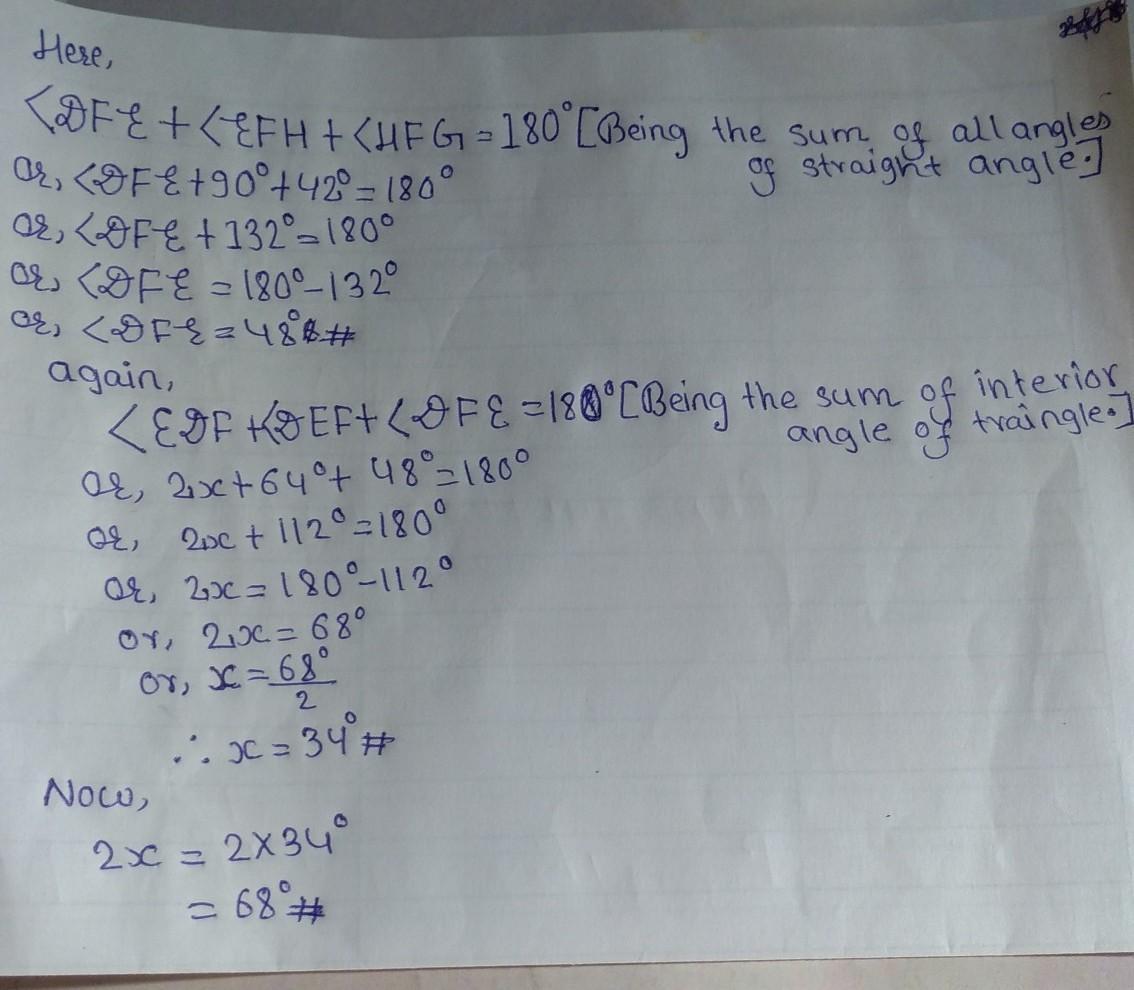 Here,
<DFE + <EFH + <HFG = 180° [Being the sum of all angles
of straight angle.]
or, <DFE + 90° + 42° = 180°
or, <DFE + 132° = 180°
or, <DFE = 180° - 132°
or, <DFE = 48° #
again,
<EDF + <DEF + <DFE = 180° [Being the sum of interior
angle of traingle.]
or, 2x + 64° + 48° = 180°
or, 2x + 112° = 180°
or, 2x = 180° - 112°
or, 2x = 68°
or, x = 68°
2
∴ x = 34° #
Now,
2x = 2 × 34°
= 68° #